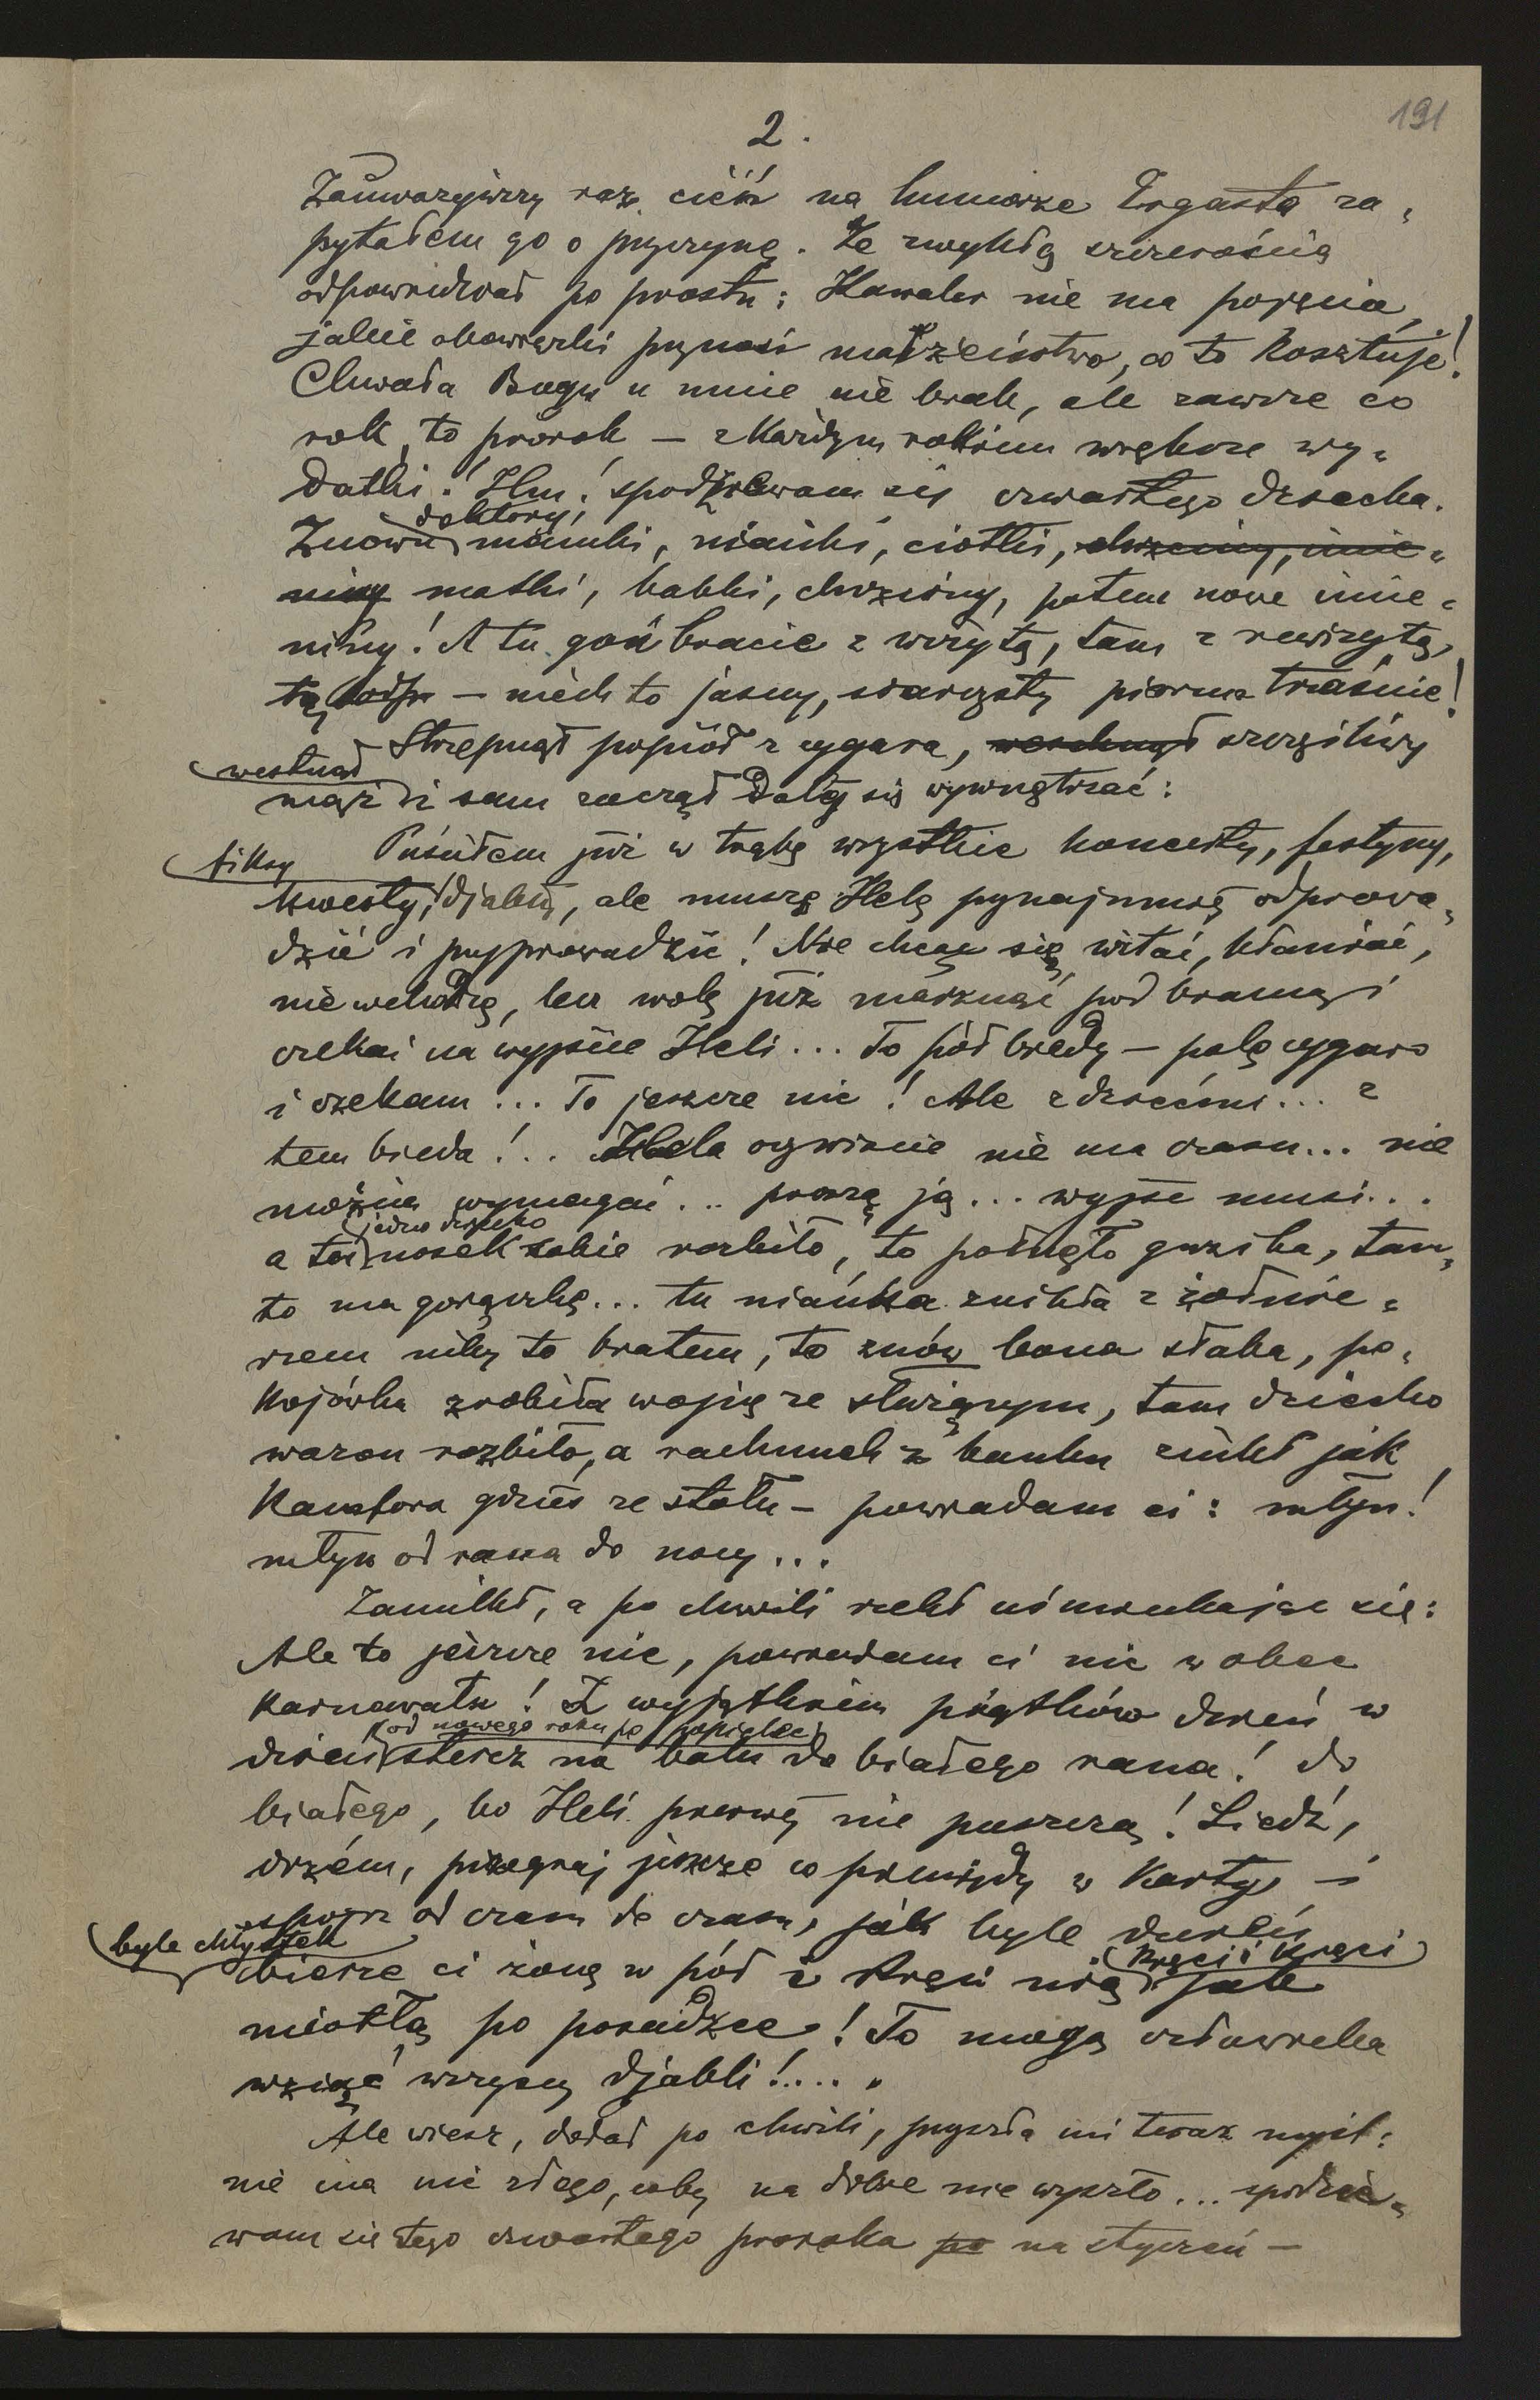 191
2.
Zauważywszy raz cień na humorze Ergasta za=
pytałem go o przyczynę. Ze zwykłą szczerością
odpowiedział po prostu: Kawaler nie ma pojęcia,
jakie obowiązki przynosi małżeństwo, co to kosztuje!
Chwała Bogu u mnie nie brak, ale zawsze co
rok, to prorok — z każdym rokiem większe wy=
datki! Hm! spodziewam się czwartego dziecka.
doktory,
Znowu mamki, niańki, ciotki, chrzciny, imie=
niny matki, babki, chrzciny, potem nowe imie=
niny! A tu goń bracie z wizytą, tam z rewizytą,
— niech to jasny, siarczysty piorun trzaśnie!
Strzepnął popiół z cygara, westchnął szczęśliwy
westchnął
mąż i sam zaczął dalej się wywnętrzać:
Puściłem już w trąbę wszystkie koncerty, festyny,
fiksy
kwesty, djabła, ale muszę Helę przynajmniej odprowa=
dzić i przyprowadzić! Nie chcę się witać, kłaniać,
nie wchodzę, lecz wolę już marznąć pod bramą i
czekać na wyjście Heli... To pół biedy — palę cygaro
i czekam... To jeszcze nic! Ale z dziećmi... z
tem bieda!.. Hela oczywiście nie ma czasu... nie
można wymagać... proszą ją... wyjść musi...
jedno dziecko
a toż nosek sobie rozbiło, to połknęło guzika, tam=
to ma gorączkę... tu niańka znikła z żołnie=
rzem niby to bratem, to znów bona słaba, po=
kojówka zrobiła wojnę ze służącym, tam dziecko
wazon rozbiło, a rachunek z banku znikł jak
kamfora gdzieś ze stołu — powiadam ci: młyn!
młyn od rana do nocy...
Zamilkł, a po chwili rzekł uśmiechając się:
Ale to jeszcze nic, powiadam ci nic wobec
karnawału! Z wyjątkiem piątków dzień w
od nowego roku po popielec
dzień stercz na balu do białego rana! do
białego, bo Heli pierwej nie puszczą! Siedź,
drzém, przegraj jeszcze co pieniędzy w karty i
spojrz od czasu do czasu, jak byle dureń
byle chłystek
bierze ci żonę w pół i kręci nią jak
kręci i kręci
miotłą po posadzce! To mogą człowieka
wziąć wszyscy djabli!....
Ale wiesz, dodał po chwili, przyszła mi teraz myśl:
nie ma nic złego, coby na dobre nie wyszło... spodzie=
wam się tego czwartego proroka po na styczeń —